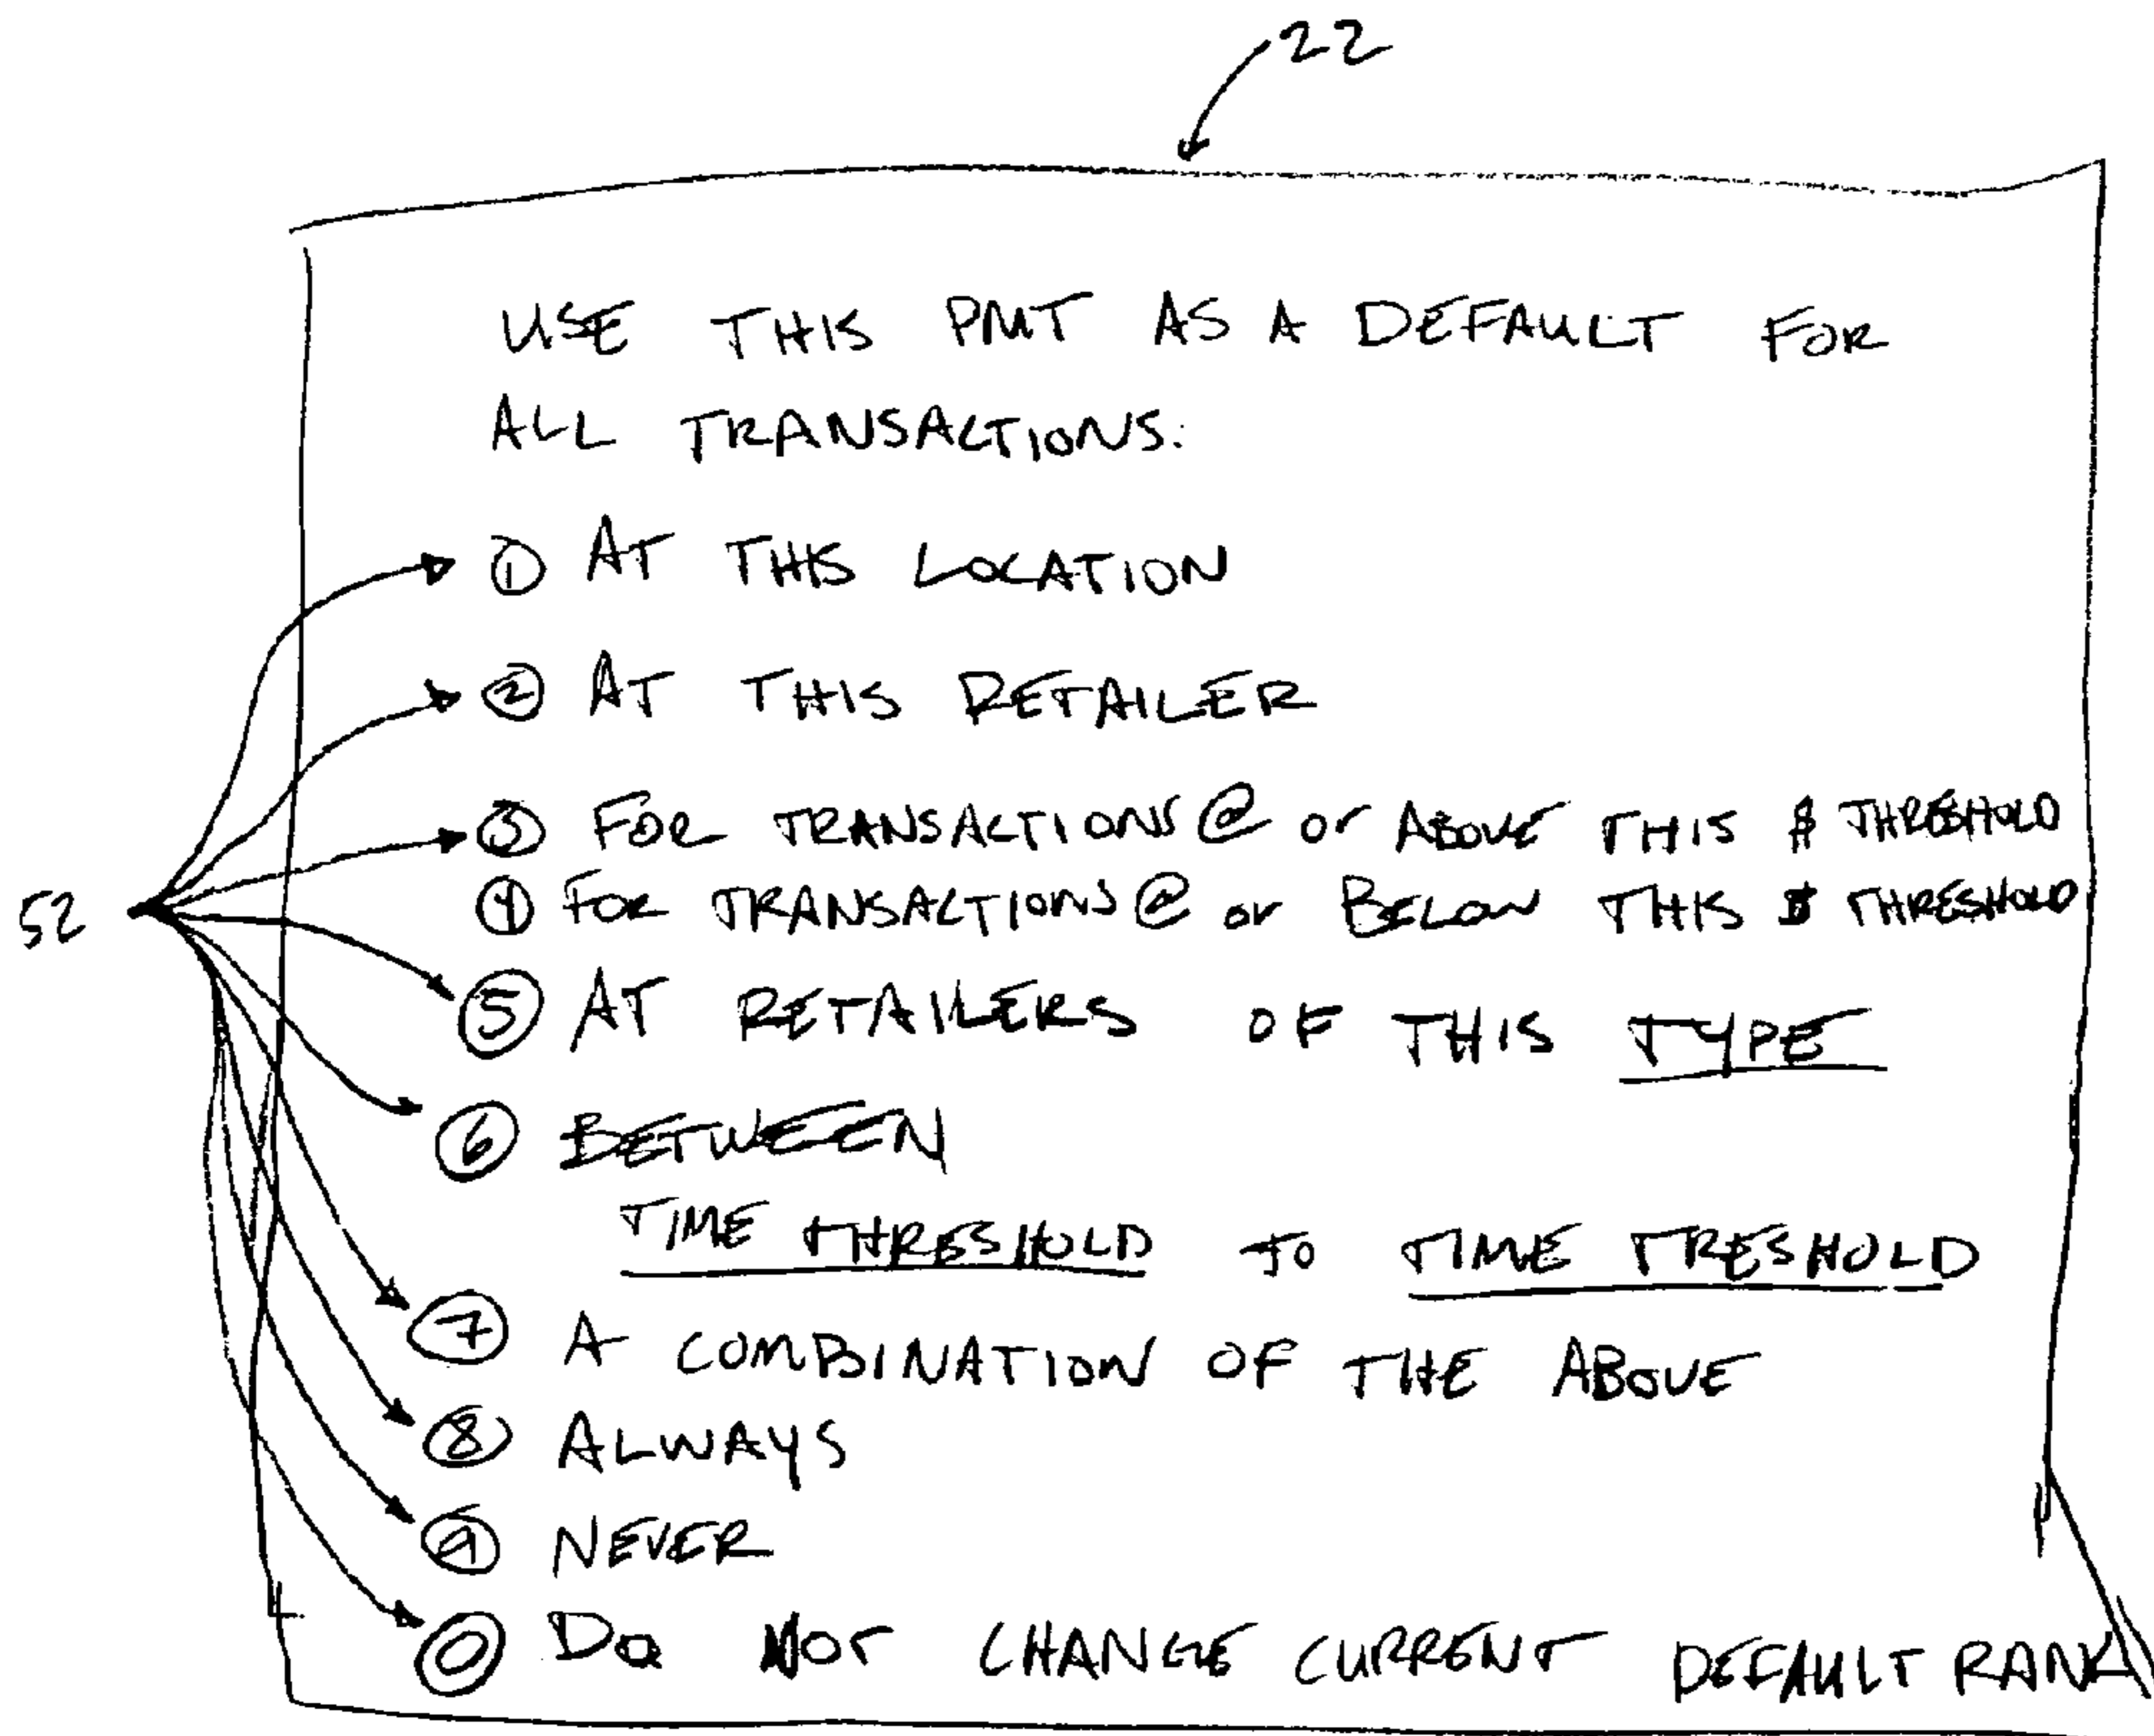 22
USE THIS PMT AS A DEFAULT FOR
ALL TRANSACTIONS:
① AT THIS LOCATION
② AT THIS RETAILER
③ FOR TRANSACTIONS @ or ABOVE THIS $ THRESHOLD
52
④ FOR TRANSACTIONS @ or BELOW THIS $ THRESHOLD
⑤ AT RETAILERS OF THIS TYPE
⑥ BETWEEN
TIME THRESHOLD TO TIME TRESHOLD
⑦ A COMBINATION OF THE ABOVE
⑧ ALWAYS
⑨ NEVER
⓪ DO NOT CHANGE CURRENT DEFAULT RANK